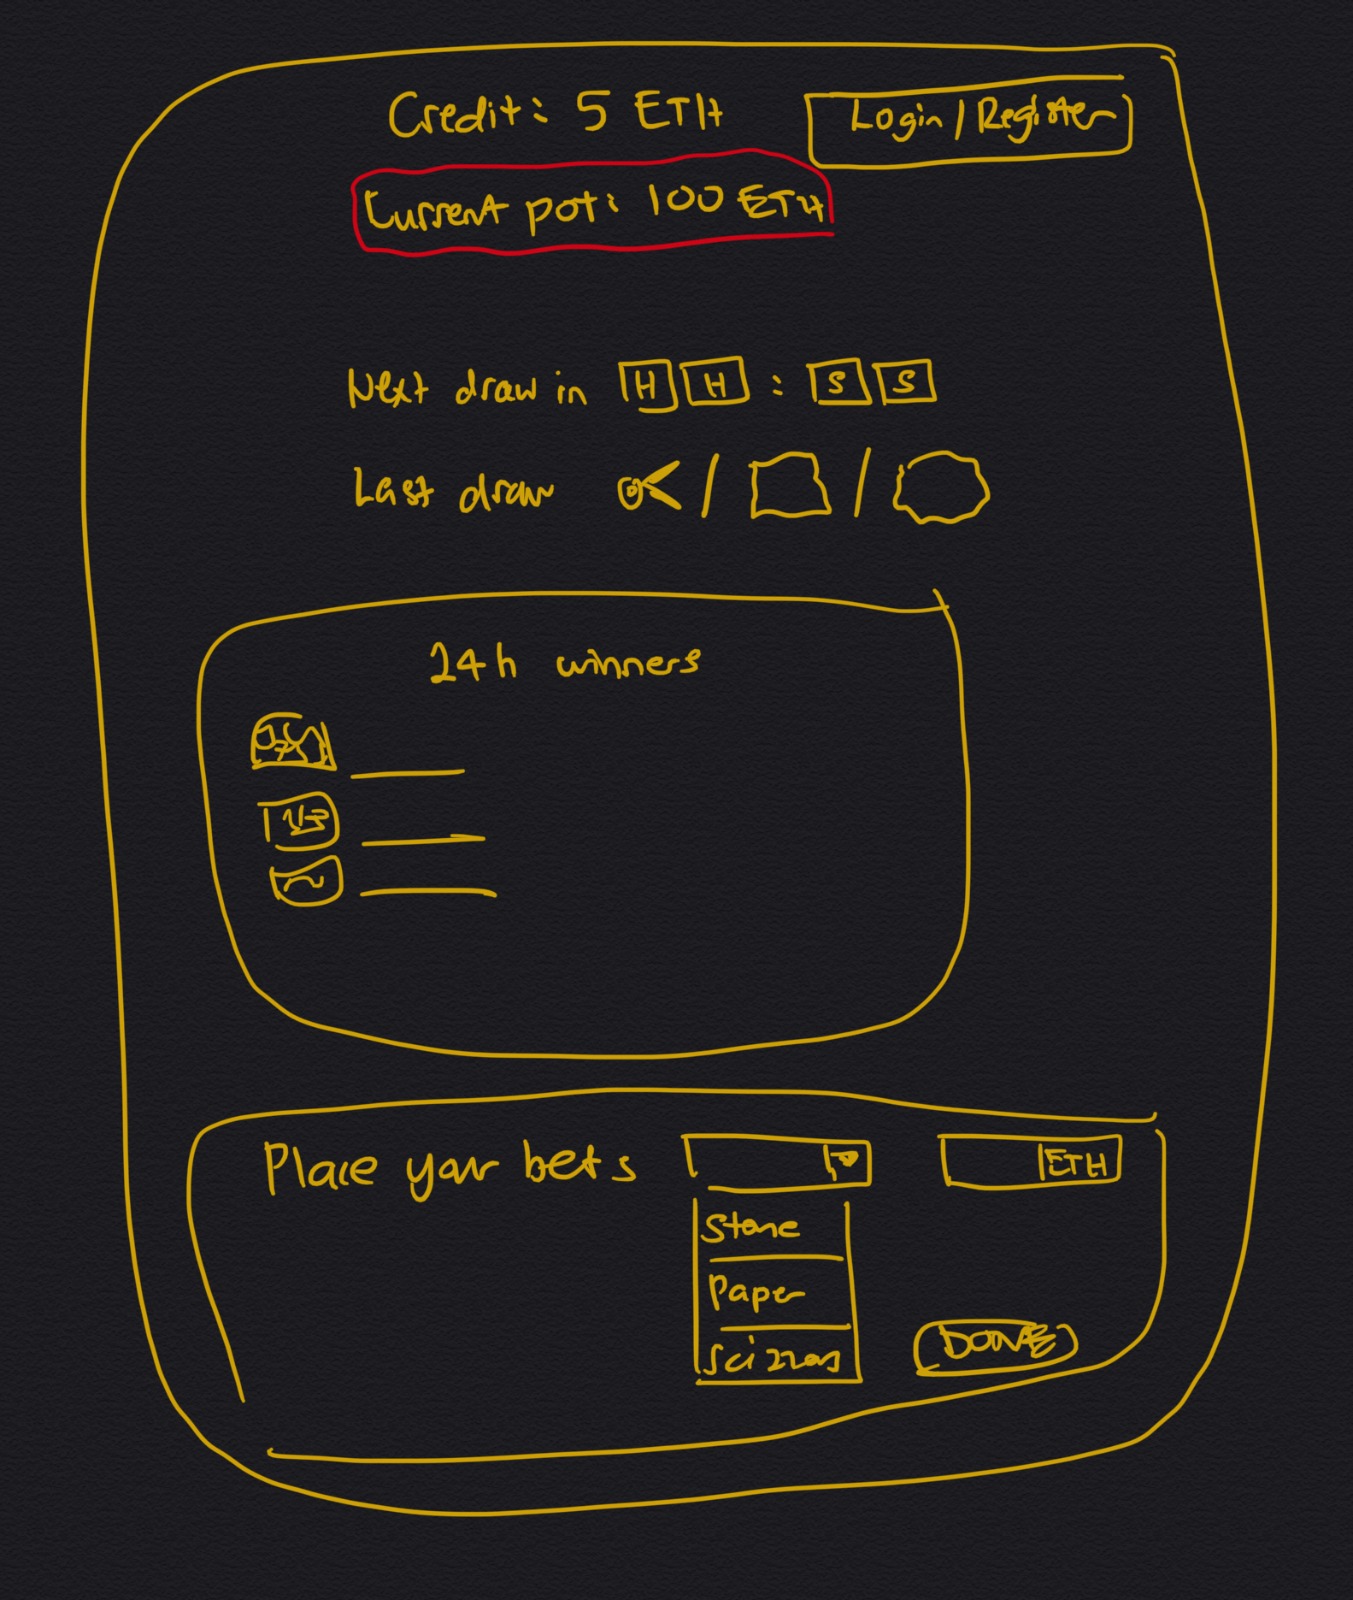 Credit: 5 ETH
Login / Register
Current pot: 100 ETH
Next draw in H H : S S
Last draw / /
24h winners
Place your bets
ETH
Stone
Paper
Scizzors
DONE